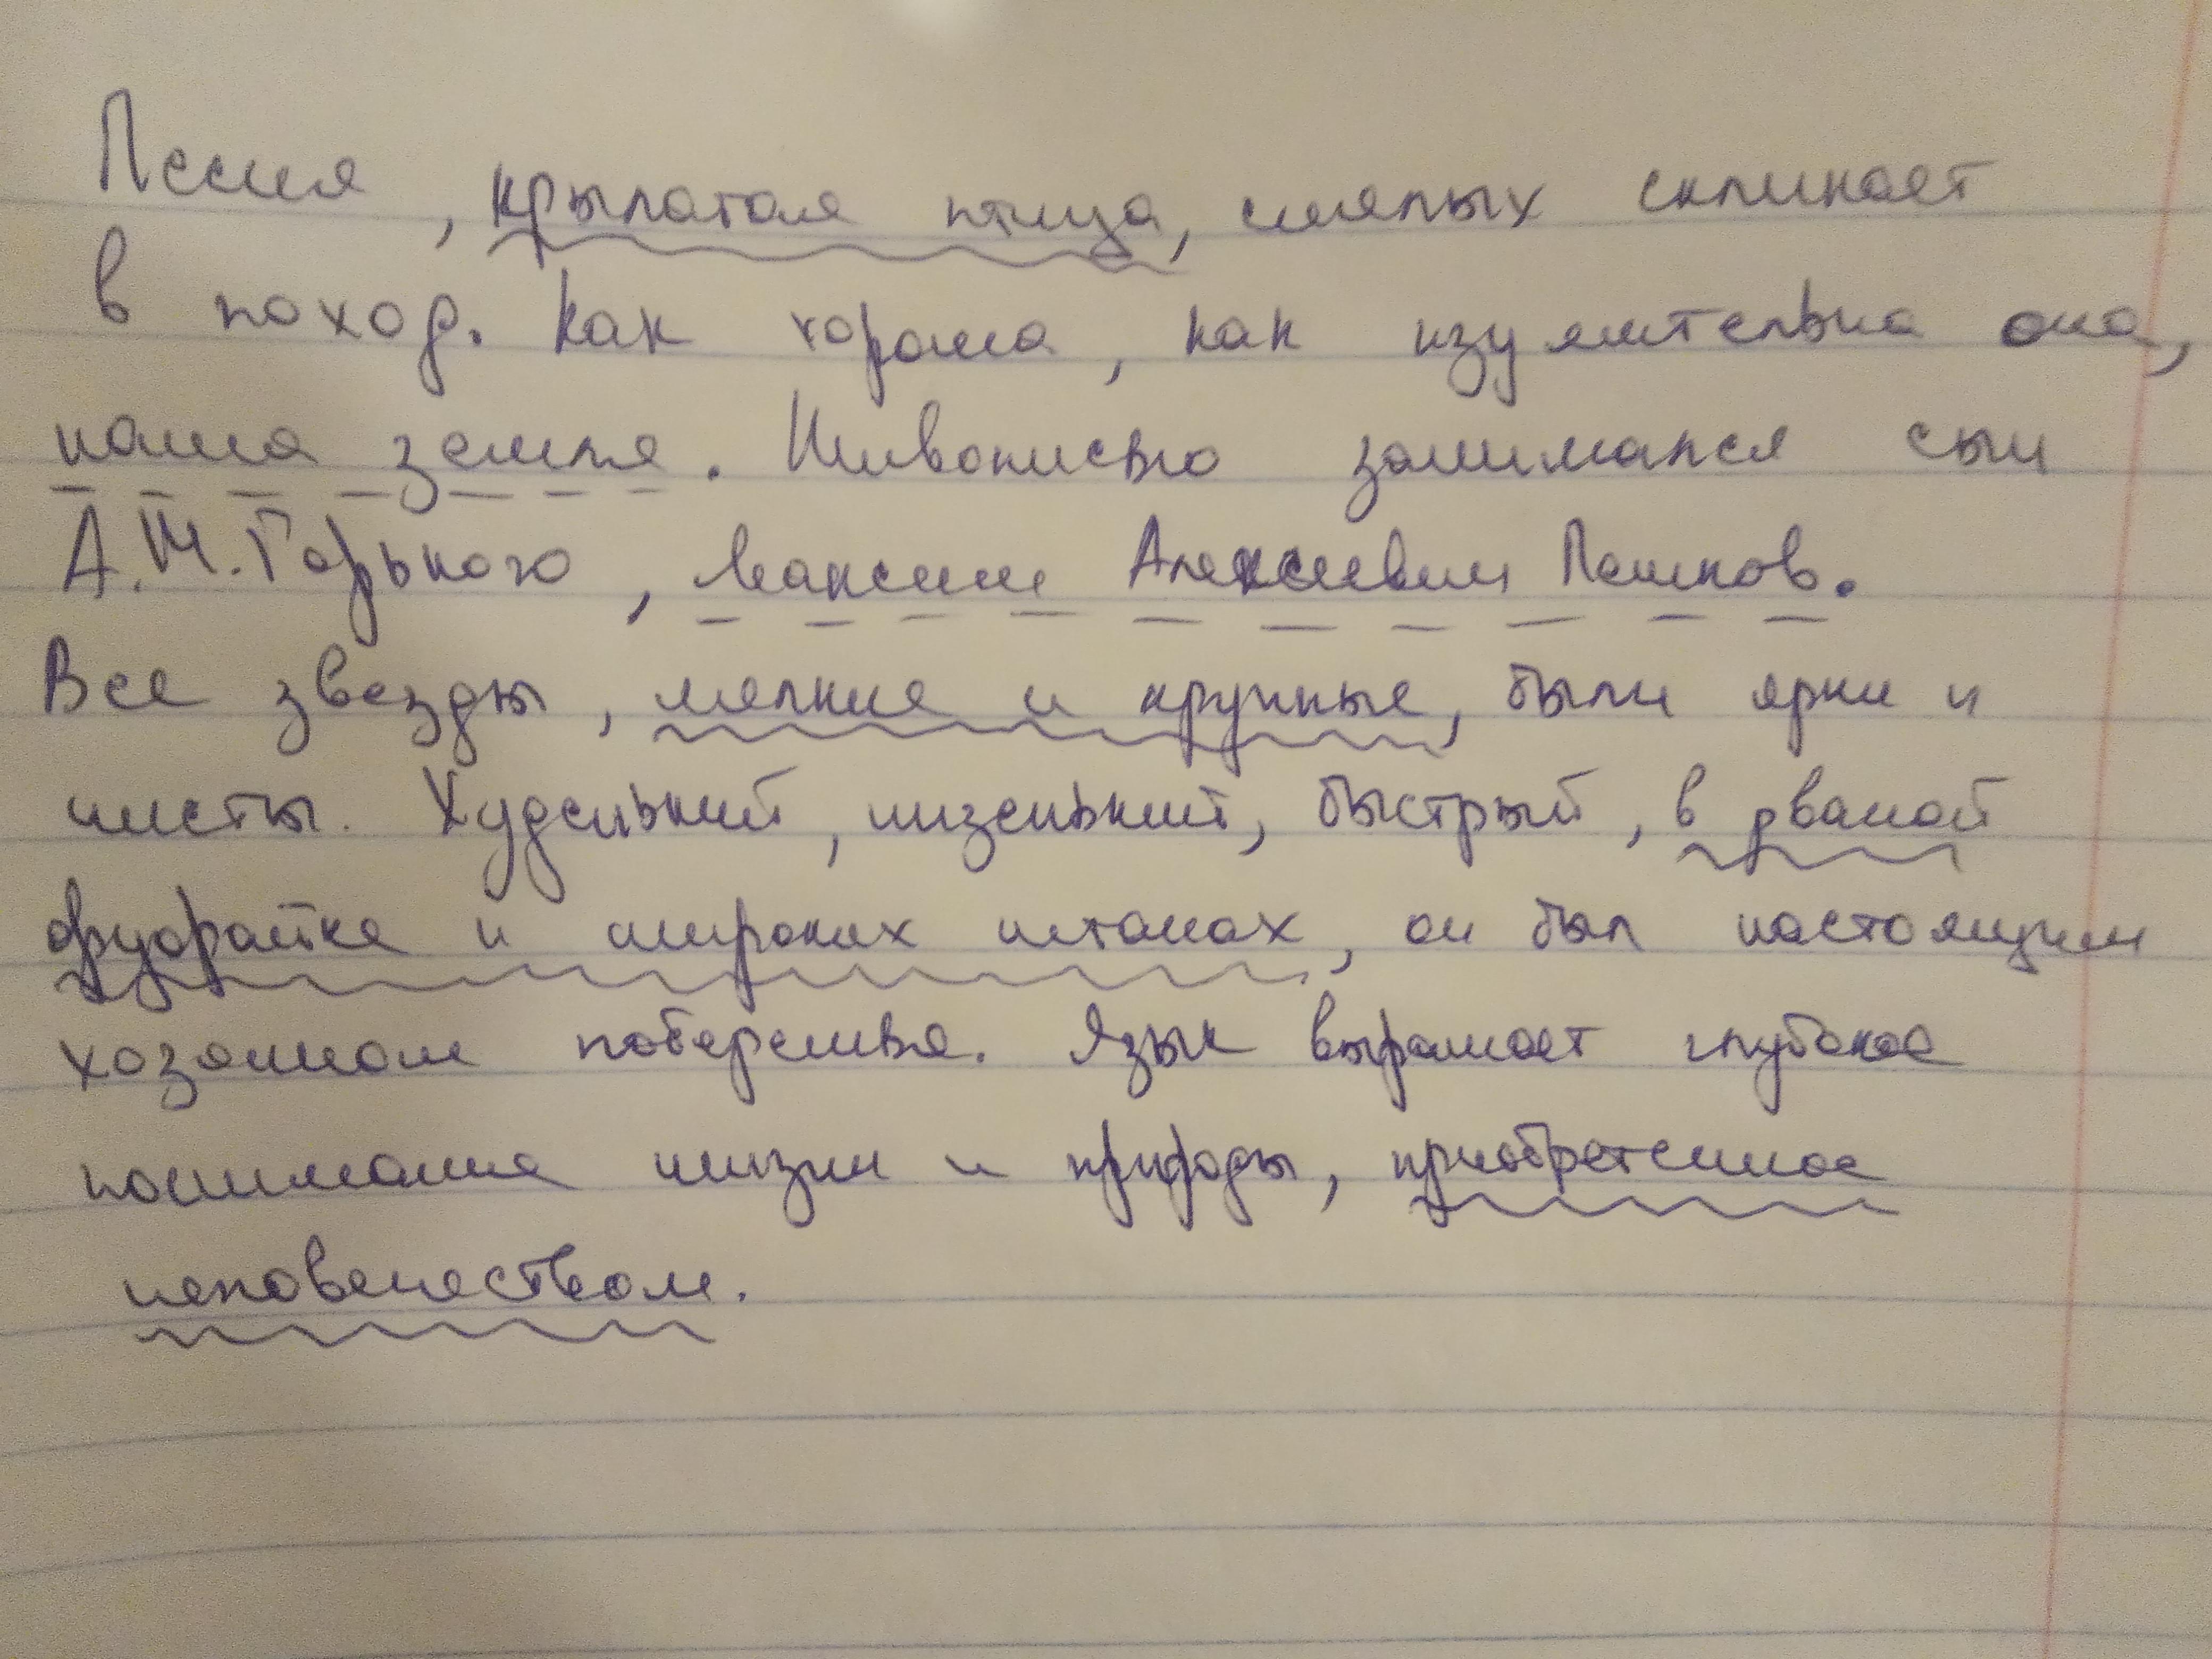 Песня, крылатая птица, смелых скликает
в поход. Как хороша, как изумительна она,
наша земля. Живописью занимался сын
А.М.Горького, Максим Алексеевич Пешков.
Все звезды, мелкие и крупные, были ярки и
чисты. Худенький, низенький, быстрый, в рваной
фуфайке и широких штанах, он был настоящим
хозяином побережья. Язык выражает глубокое
понимание жизни и природы, приобретенное
человечеством.